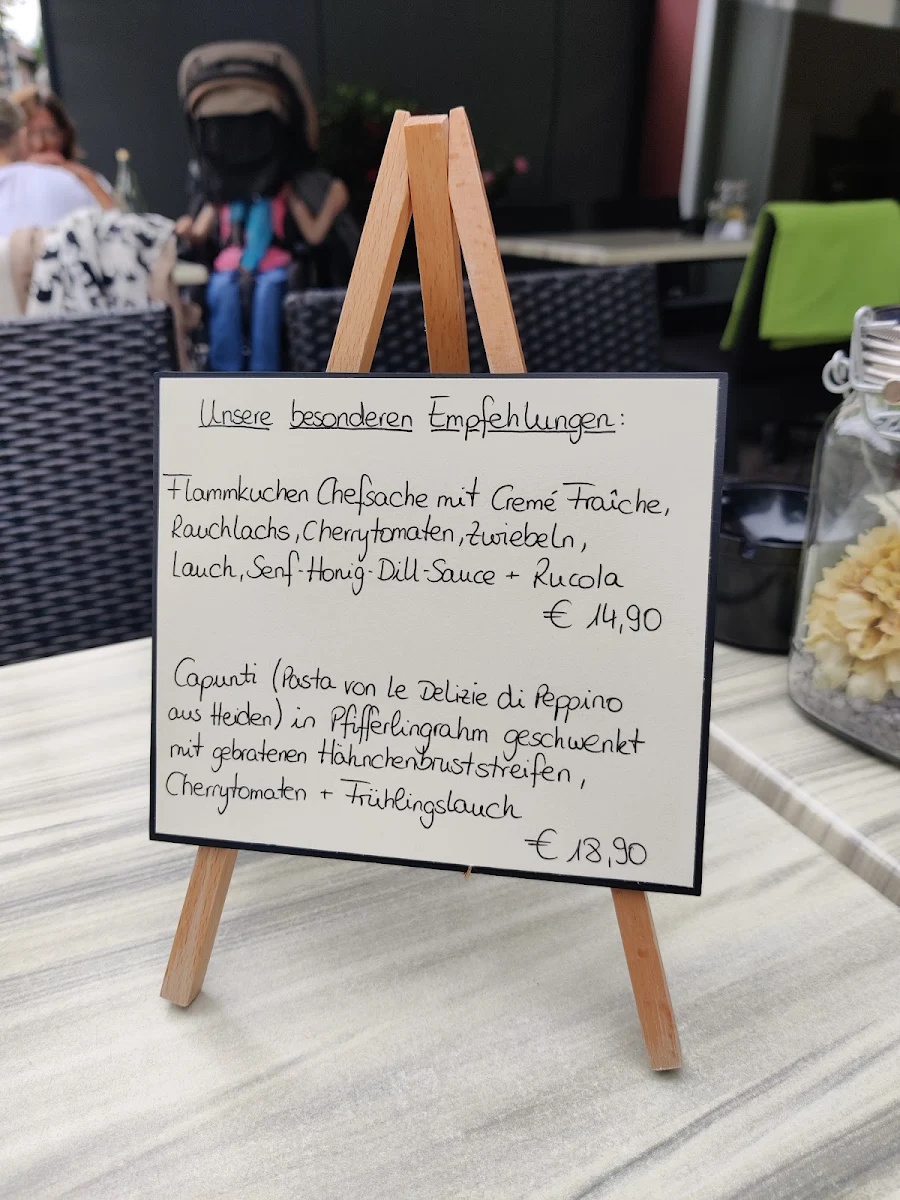 Unsere besonderen Empfehlungen:
Flammkuchen Chefsache mit Cremé Fraîche,
Rauchlachs, Cherrytomaten, Zwiebeln,
Lauch, Senf-Honig-Dill-Sauce + Rucola
€ 14,90
Capunti (Pasta von Le Delizie di Peppino
aus Heiden) in Pfifferlingrahm geschwenkt
mit gebratenen Hähnchenbruststreifen,
Cherrytomaten + Frühlingslauch
€ 18,90